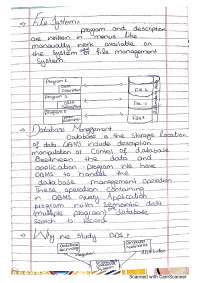 → File System:
program and description
are written in menus the
manually work available on
the system to file management
System
Program 1
Data
Description
File 1
Program 2
Data
Description
File 2
Program 3
File 3
→ Database Management
Database is the storage location
of data DBMS include description
manipulation of Control of database
Between the data and
application program we have
DBMS to handel the
database management operation
These operation containing
in DBMS query Application
program with
(multiple program) database
search is record
→ Why we Study DBS :-
Scanned with CamScanner